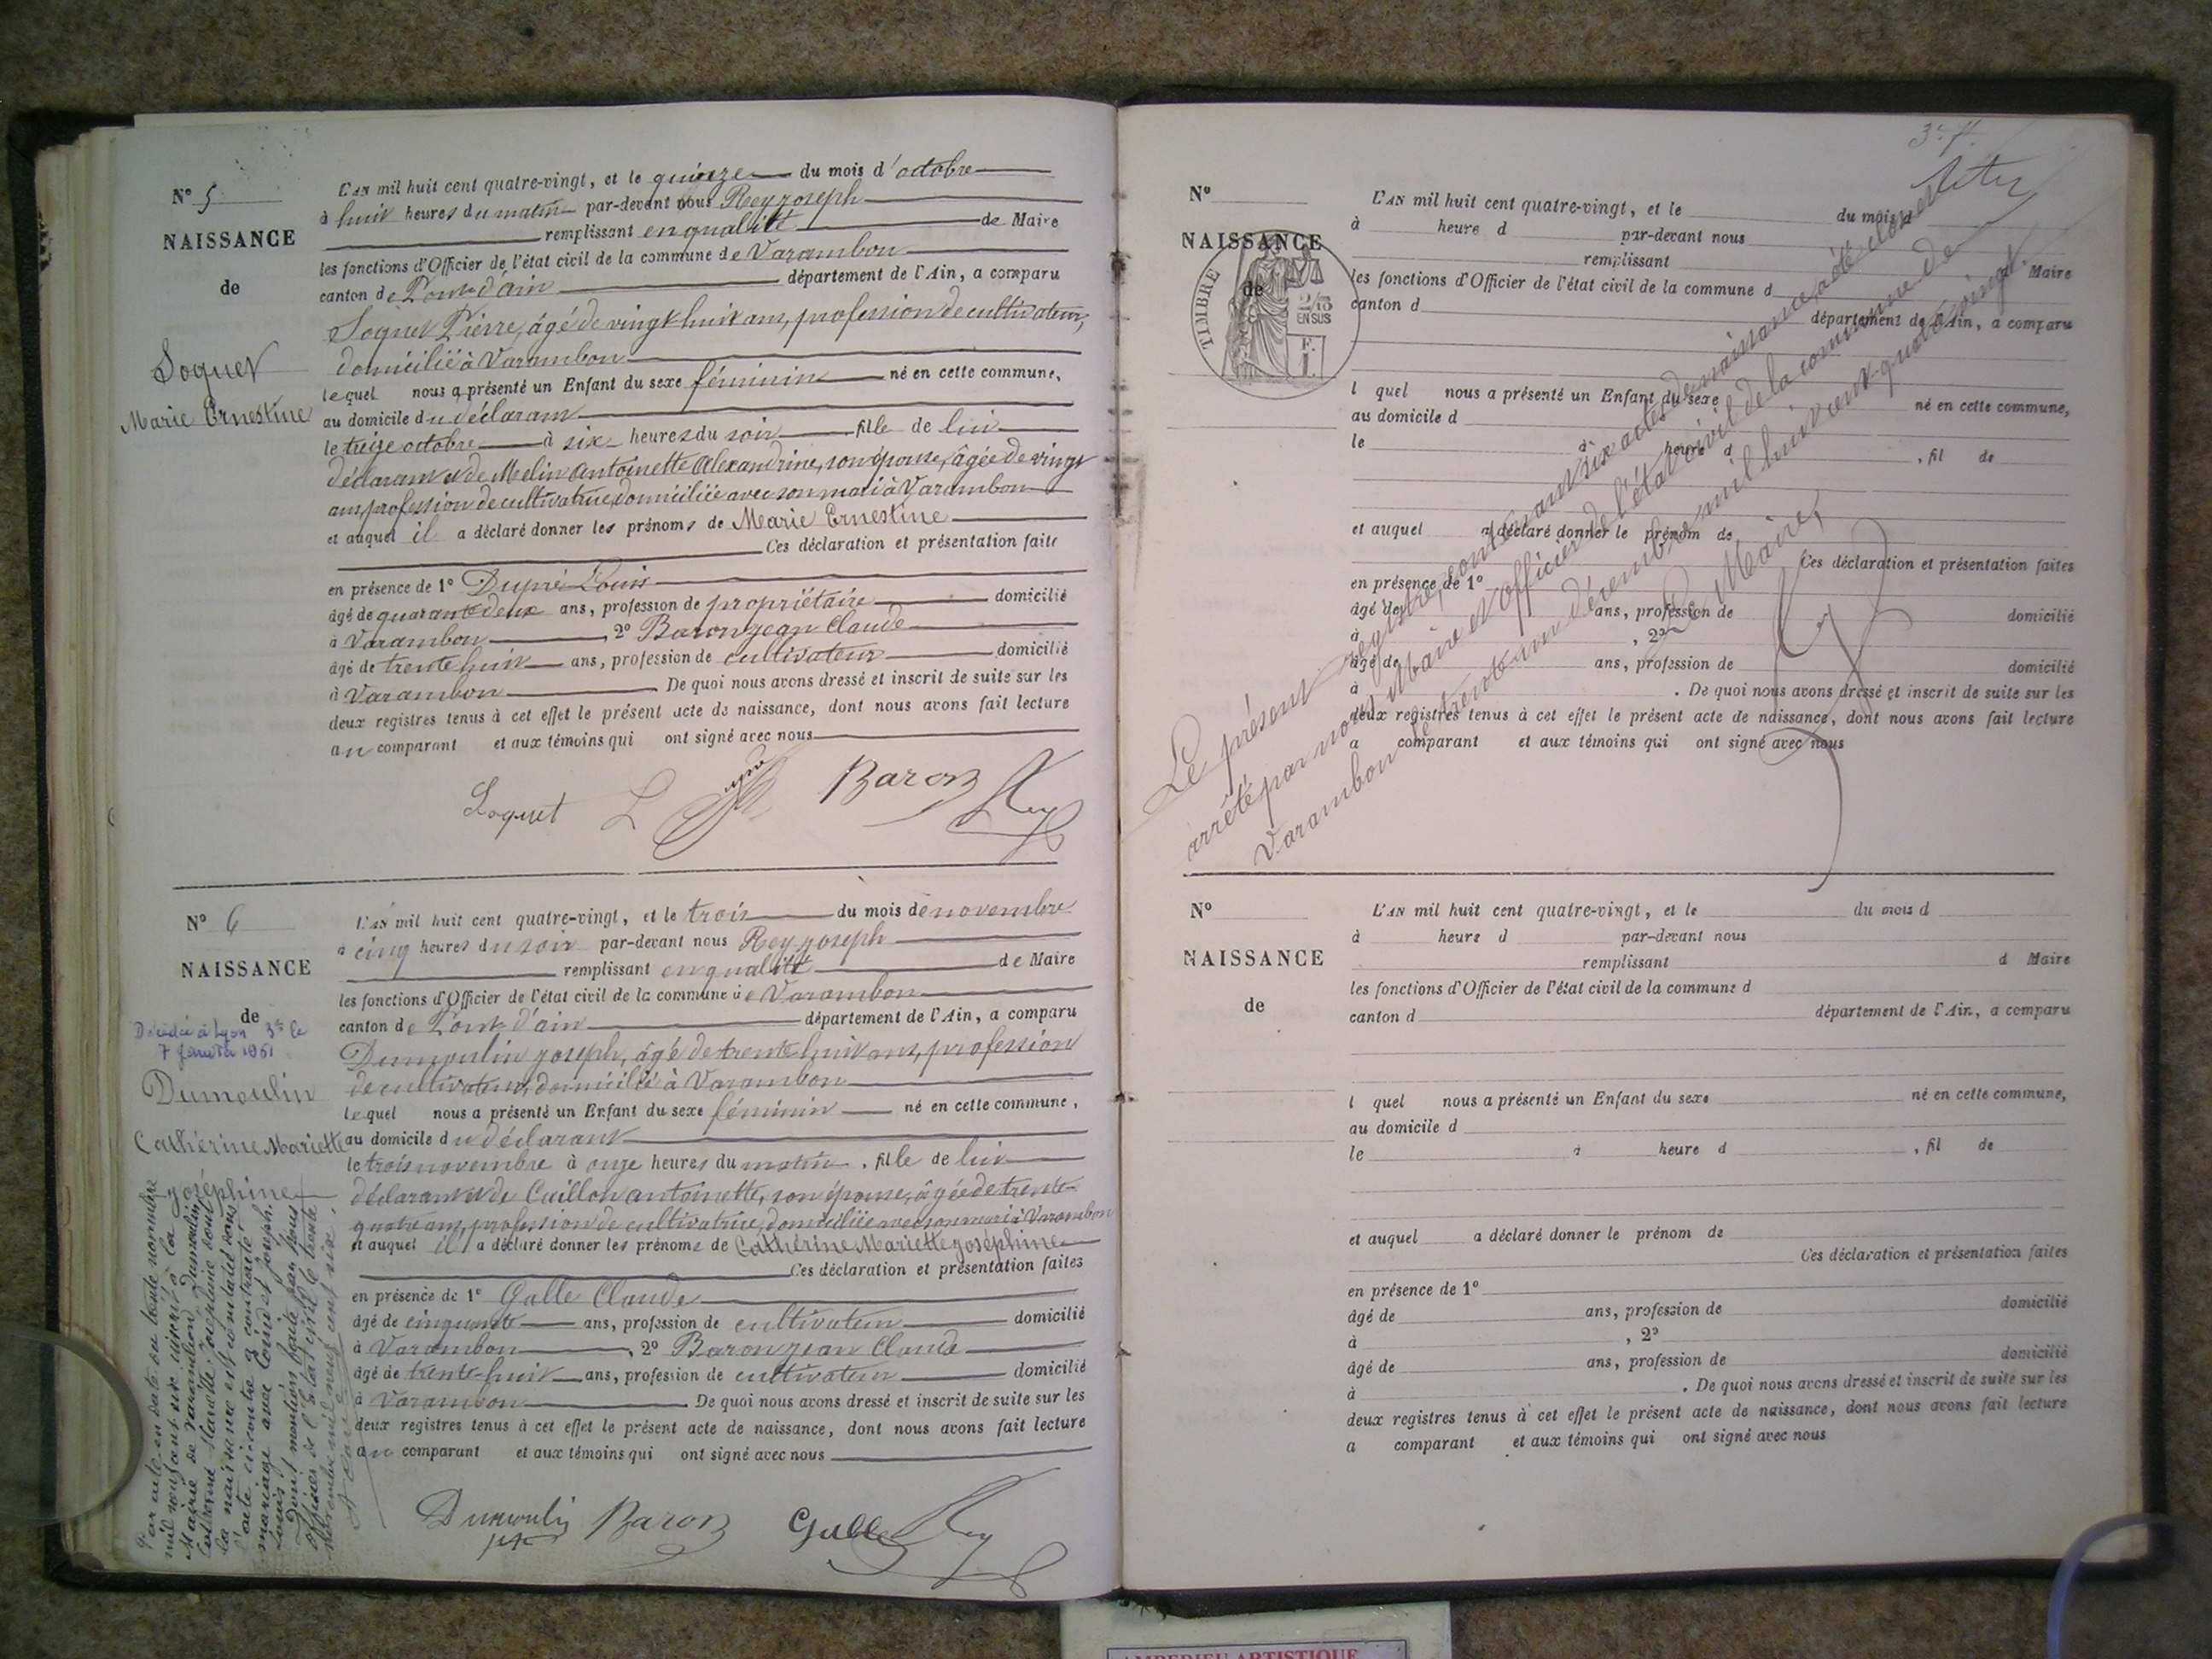 N° 5
NAISSANCE
de
Soquet
Marie Ernestine
L'AN mil huit cent quatre-vingt, et le quinze du mois d'octobre
à huit heures du matin par-devant nous Rey joseph
remplissant en qualité de Maire
les fonctions d'Officier de l'état civil de la commune de Varambon
canton de Pont-d'ain département de l'Ain, a comparu
Soquet Pierre, âgé de vingt huit ans, profession de cultivateur,
domicilié à Varambon
lequel nous a présenté un Enfant du sexe féminin né en cette commune,
au domicile du déclarant
le treize octobre à six heures du soir fille de lui
déclarant et de Melin Antoinette Alexandrine, son épouse, âgée de vingt
ans, profession de cultivatrice, domiciliée avec son mari à Varambon
et auquel il a déclaré donner les prénoms de Marie Ernestine
Ces déclaration et présentation faite
en présence de 1° Dupré Louis
âgé de quarante deux ans, profession de propriétaire domicilié
à Varambon, 2° Baron jean Claude
âgé de trente huit ans, profession de cultivateur domicilié
à Varambon De quoi nous avons dressé et inscrit de suite sur les
deux registres tenus à cet effet le présent acte de naissance, dont nous avons fait lecture
au comparant et aux témoins qui ont signé avec nous
Soquet L Baron Rey
N° 6
NAISSANCE
de
Décédée à Lyon 3e le
7 février 1961
Dumoulin
Cathérine Mariette
joséphine
L'AN mil huit cent quatre-vingt, et le trois du mois de novembre
à cinq heures du soir par-devant nous Rey joseph
remplissant en qualité de Maire
les fonctions d'Officier de l'état civil de la commune de Varambon
canton de Pont-d'ain département de l'Ain, a comparu
Dumoulin joseph, âgé de trente huit ans, profession
de cultivateur, domicilié à Varambon
lequel nous a présenté un Enfant du sexe féminin né en cette commune,
au domicile du déclarant
le trois novembre à onze heures du matin, fille de lui
déclarant et de Cuillon antoinette, son épouse, âgée de trente-
quatre ans, profession de cultivatrice, domiciliée avec son mari à Varambon
et auquel il a déclaré donner les prénoms de Cathérine Mariette joséphine
Ces déclaration et présentation faites
en présence de 1° Galle Claude
âgé de cinquante ans, profession de cultivateur domicilié
à Varambon, 2° Baron jean Claude
âgé de trente-huit ans, profession de cultivateur domicilié
à Varambon De quoi nous avons dressé et inscrit de suite sur les
deux registres tenus à cet effet le présent acte de naissance, dont nous avons fait lecture
au comparant et aux témoins qui ont signé avec nous
Dumoulin Baron Galle Rey
Par acte en date du trente novembre
mil neuf cent six, dressé à la
Mairie de Varambon, Dumoulin
Catherine Mariette Joséphine dont
la naissance est constatée dans
l'acte ci-contre a contracté
mariage avec joseph
Louis
Dont mention faite par nous
officier de l'état civil le trente
novembre mil neuf cent six.
3e f.
N°
NAISSANCE
de
TIMBRE
2/10
EN SUS
F.
1.
L'AN mil huit cent quatre-vingt, et le du mois d
à heure d par-devant nous
remplissant d Maire
les fonctions d'Officier de l'état civil de la commune d
canton d département de l'Ain, a comparu
l quel nous a présenté un Enfant du sexe né en cette commune,
au domicile d
le à heure d , fil de
et auquel a déclaré donner le prénom de
Ces déclaration et présentation faites
en présence de 1°
âgé de ans, profession de domicilié
à , 2°
âgé de ans, profession de domicilié
à . De quoi nous avons dressé et inscrit de suite sur les
deux registres tenus à cet effet le présent acte de naissance, dont nous avons fait lecture
a comparant et aux témoins qui ont signé avec nous
Le présent registre, contenant six actes de naissance, a été clos et
arrêté par nous, Maire et Officier de l'état civil de la commune de
Varambon le trente un décembre mil huit cent quatre vingt.
Le Maire,
N°
NAISSANCE
de
L'AN mil huit cent quatre-vingt, et le du mois d
à heure d par-devant nous
remplissant d Maire
les fonctions d'Officier de l'état civil de la commune d
canton d département de l'Ain, a comparu
l quel nous a présenté un Enfant du sexe né en cette commune,
au domicile d
le à heure d , fil de
et auquel a déclaré donner le prénom de
Ces déclaration et présentation faites
en présence de 1°
âgé de ans, profession de domicilié
à , 2°
âgé de ans, profession de domicilié
à . De quoi nous avons dressé et inscrit de suite sur les
deux registres tenus à cet effet le présent acte de naissance, dont nous avons fait lecture
a comparant et aux témoins qui ont signé avec nous
AMBERIEU ARTISTIQUE